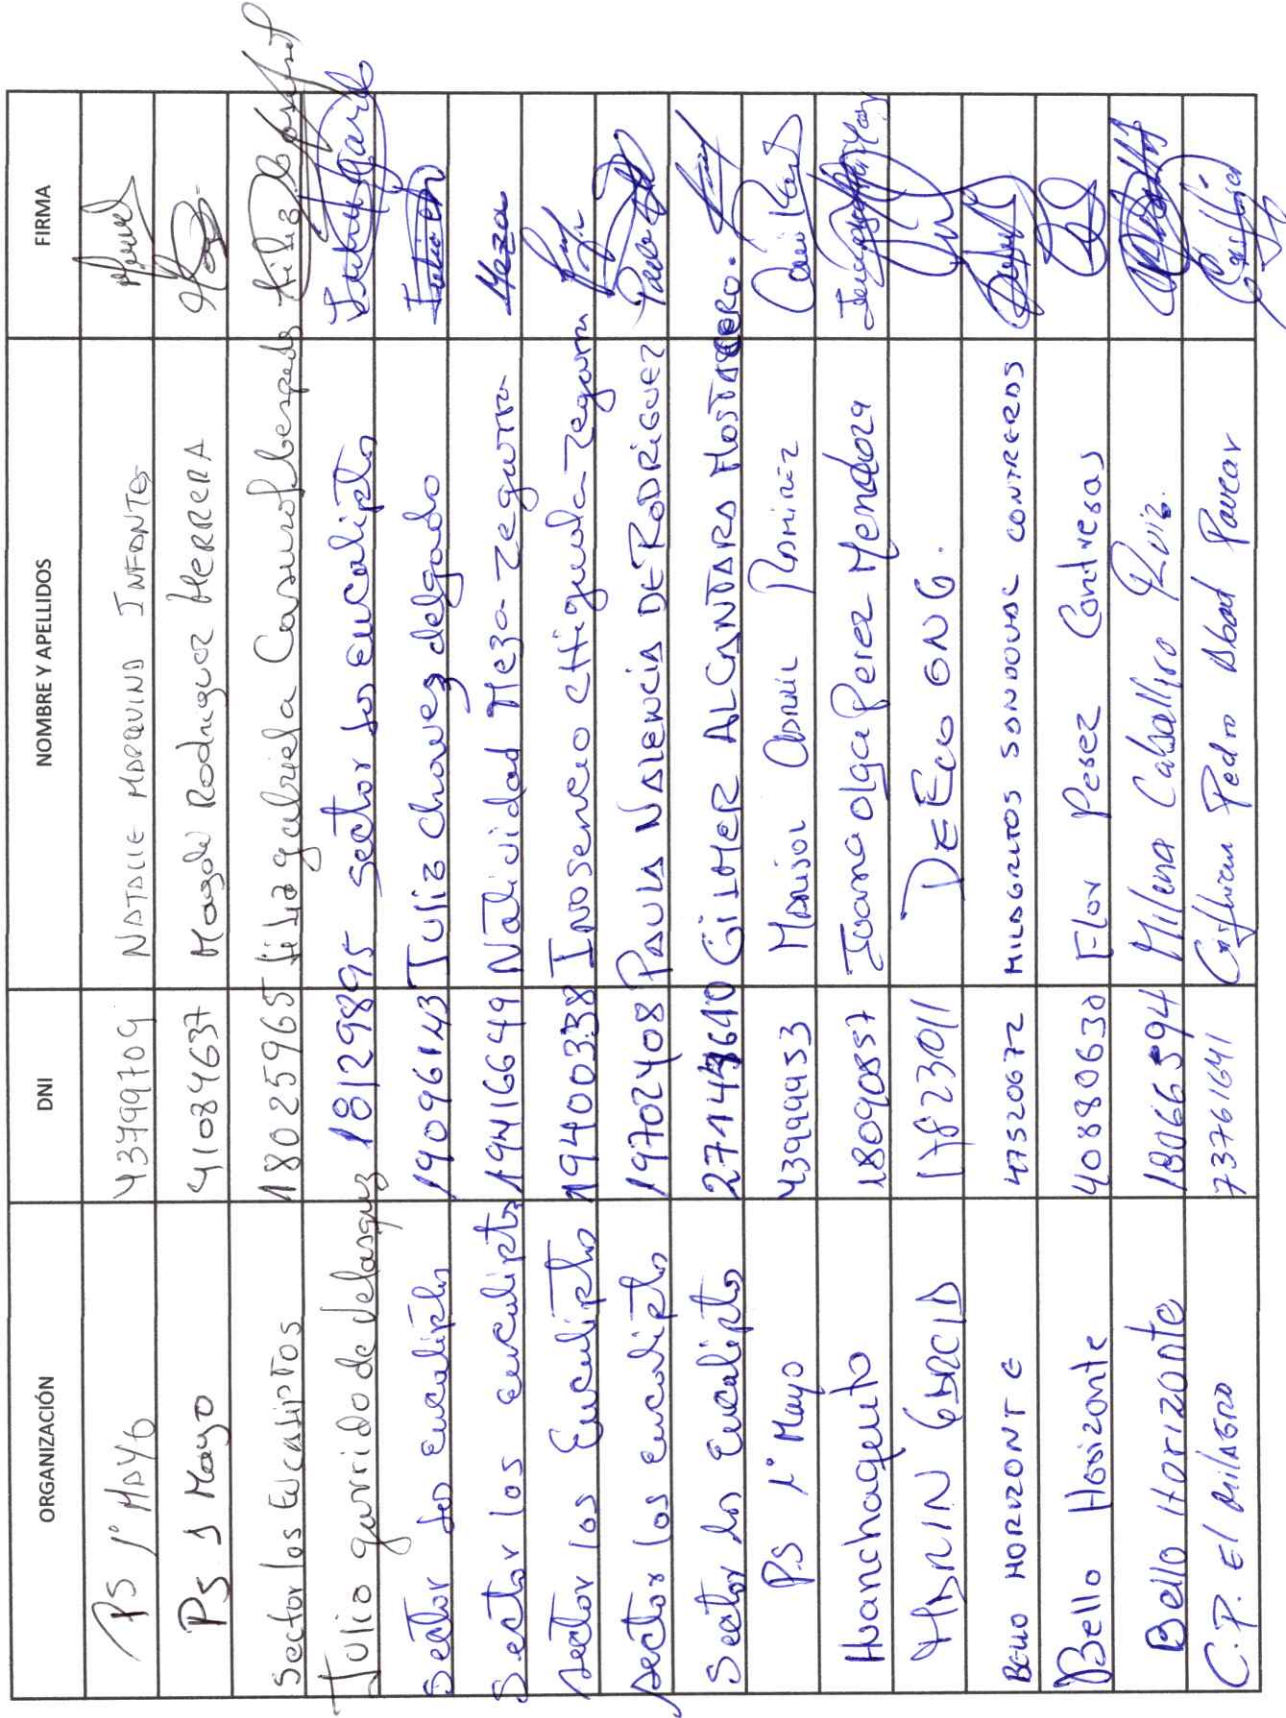 ORGANIZACIÓN DNI NOMBRE Y APELLIDOS FIRMA
PS 1° MAYO 43799709 NATALIE MARQUINA INFANTES
PS 1 Mayo 41084637 Magda Rodriguez HERRERA
Sector los EucaliPTos 18025965 gabriela
Julia garrido de Velasquez 18129895 sector los eucalipto
Sector los eucalipto 19096143 Julia chavez delgado
Sector los eucalipto 19416649 Natividad Meza Zegarra Meza
sector los Eucalipto 19400338 Inosencio CHiguala Zegarra
sector los eucalipto 19702408 PAULA VALENCIA DE RODRIGUEZ
Sector los Eucalipto GilMER ALCANTARA MOSTACERO.
PS 1° Mayo Marisol Abanil RAMIREZ
Huanchaquito 18090857 Juana Olga Perez Mendoza
MARIN GARCIA 17823011 DE ECO ONG.
BELLO HORIZONTE 47520672 MILAGRITOS SANDOVAL CONTRERAS
Bello Horizonte 40880630 Flor Perez Contreras
Bello Horizonte 18066594 Milena Caballero Ruiz.
C.P. El MilAGRO 73761641 Pedro Abad